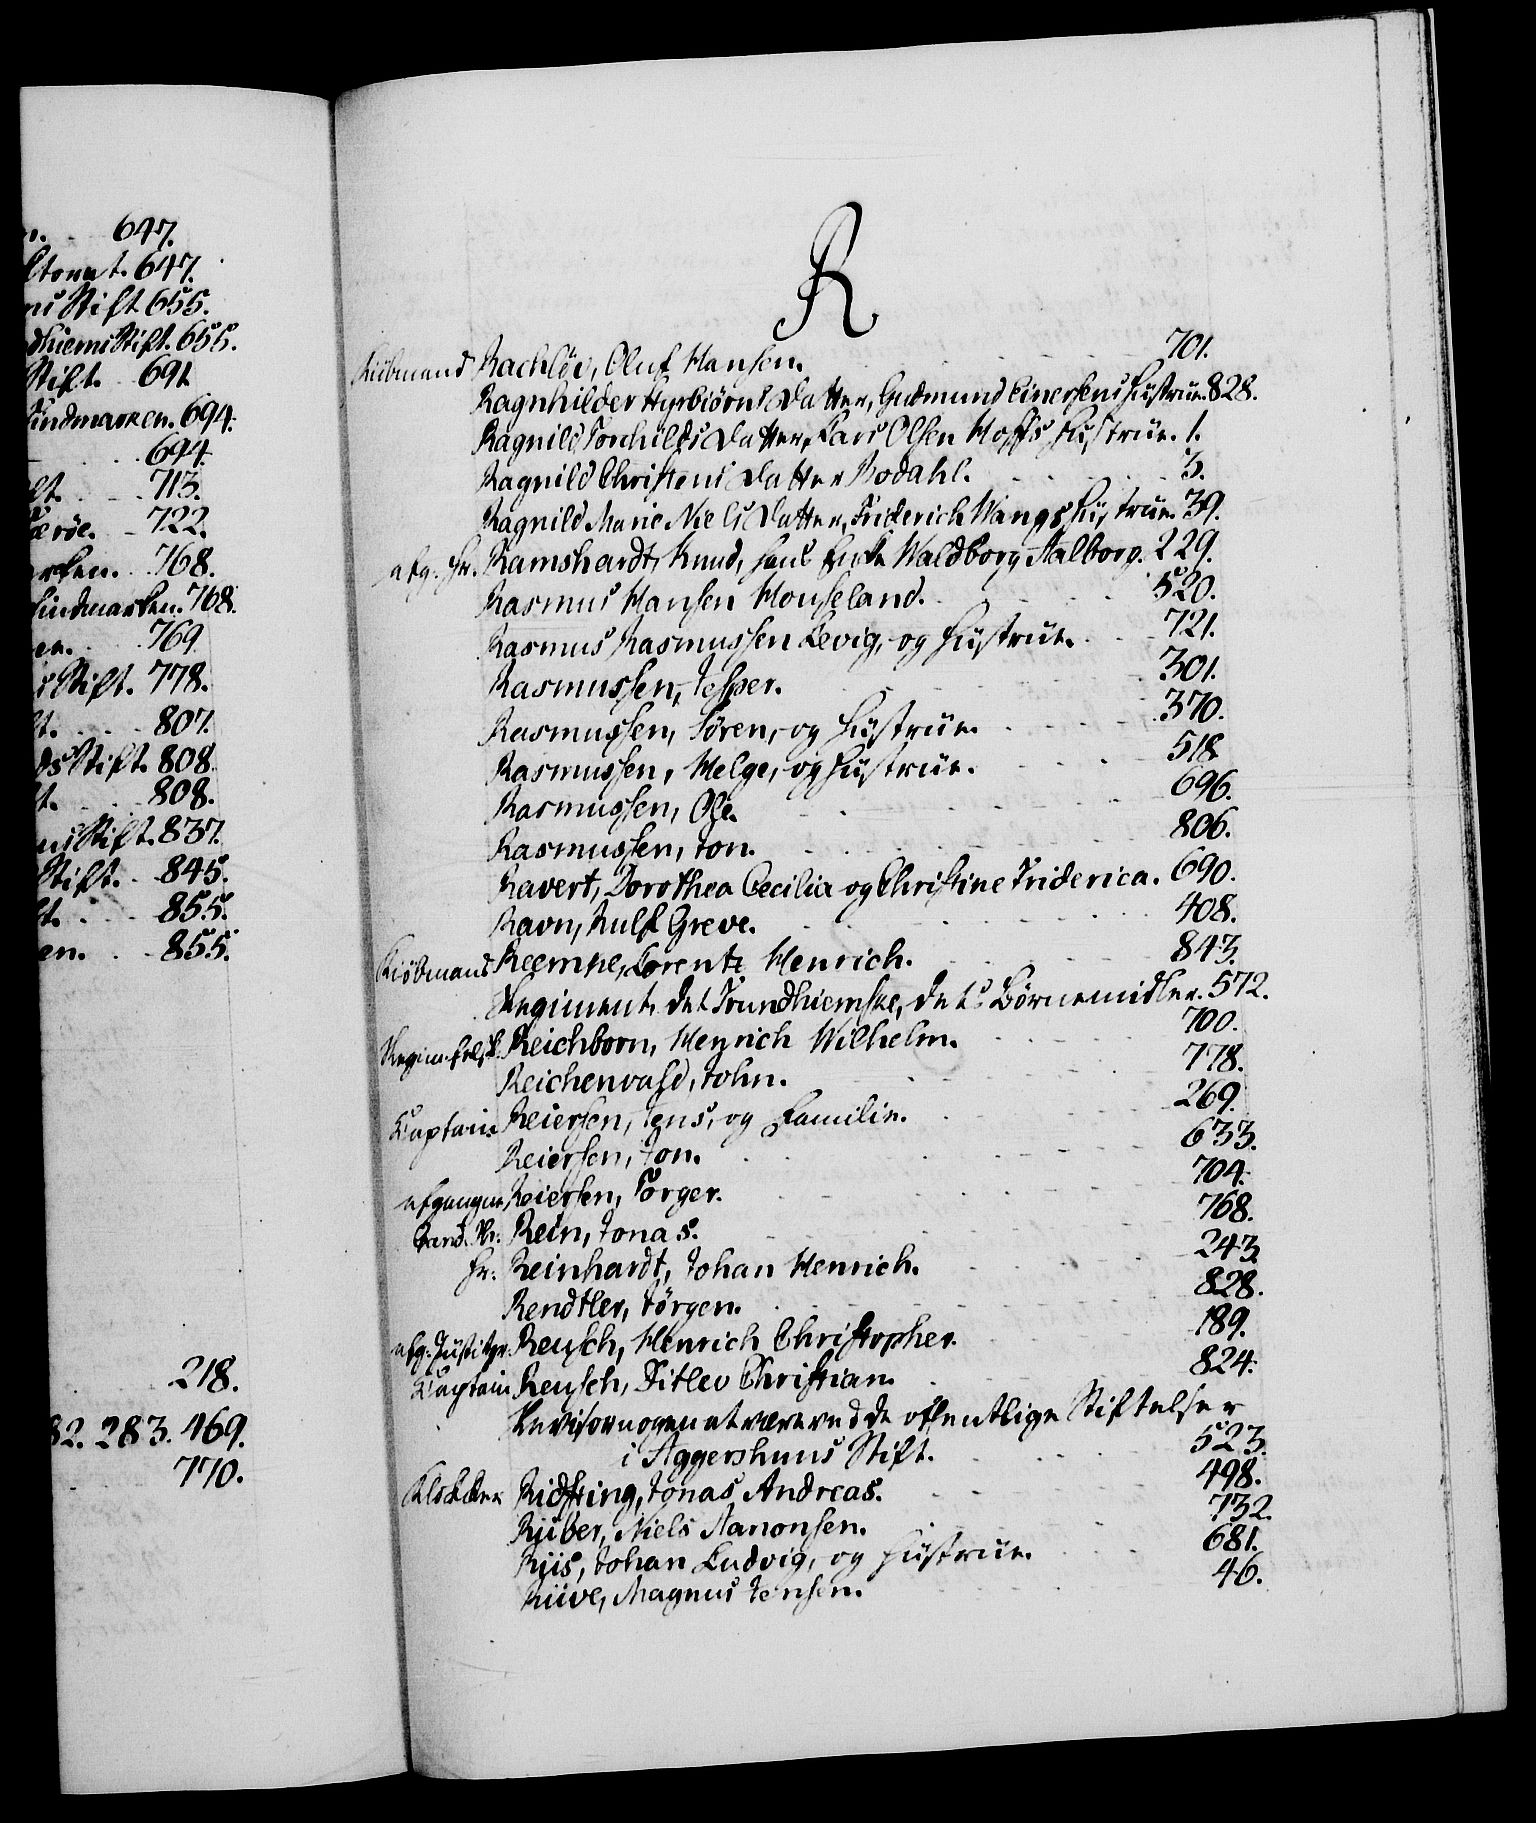 647.
ltorat. 647.
ns Stift 655.
dhiems Stift. 655.
Stift. 691
Findmarken. 694.
694.
lt. 713.
Færöe. 722.
rken. 768.
Findmarken. 768.
en. 769
s Stift. 778.
t. 807.
ds Stift. 808.
t. 808.
ns Stift. 837.
Stift. 845.
t. 855.
en. 855.
218.
82. 283. 469.
770.
R
Kiöbmand Rachlöv, Oluf Hansen. 701.
Ragnhilder Hyrbiörns Datter, Gudmund Einersens Hustrue 828.
Ragnild Torchilds Datter, Lars Olsen Hoffs Hustrue. 1.
Ragnild Christens Datter Rodahl. 3.
Ragnild Marie Niels Datter, Friderich Wangs Hustrue. 39.
afg. Hr. Ramshardt, Knud, hans Enke Waldborg Aalborg. 229.
Rasmus Hansen Houseland. 520.
Rasmus Rasmussen Levig, og Hustrue. 721.
Rasmussen, Jesper. 301.
Rasmussen, Sören, og Hustrue. 370.
Rasmussen, Helge, og Hustrue. 518
Rasmussen, Ole. 696.
Rasmussen, Jon. 806.
Ravert, Dorothea Cecilia og Christine Friderica. 690.
Ravn, Rulf Greve. 408.
Kiöbmand Reempe, Lorentz Henrich. 843.
Regiment, det Trundhiemske, dets Börnemidler. 572.
Regim. Reichborn, Henrich Wilhelm. 700.
Reichenvald, John. 778.
Captain Reiersen, Jens, og Familie. 269.
Reiersen, Jon. 633.
afgangne Reiersen, Törger. 704.
Cand. Rein, Jonas. 768.
Hr. Reinhardt, Johan Henrich. 243
Rendtler, Jörgen. 828.
afg. Justitzr. Reusch, Henrich Christopher. 189.
Captain Reusch, Ditlev Christian. 824.
Revisor nogen at være ved de offentlige Stiftelser
i Aggershuus Stift. 523.
Klokker Ridsting, Jonas Andreas. 498.
Riiber, Niels Aanonsen. 732.
Riis, Johan Ludvig, og Hustrue. 681.
Riive, Magnus Jensen. 46.